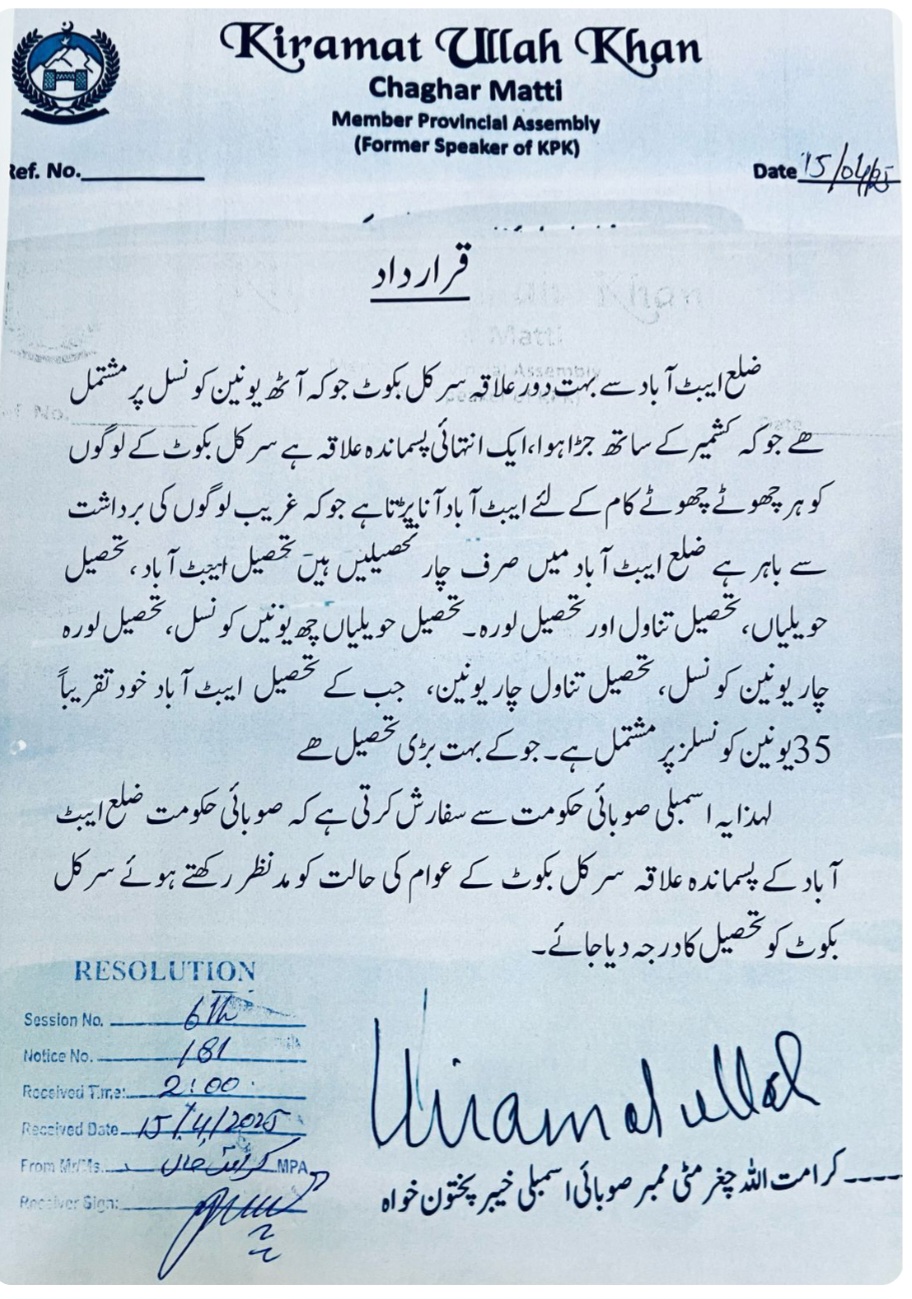 Kiramat Ullah Khan
Chaghar Matti
Member Provincial Assembly
(Former Speaker of KPK)
Ref. No.
Date 15/04/25
قرارداد
ضلع ایبٹ آباد سے بہت دور علاقہ سرکل بکوٹ جو کہ آٹھ یونین کونسل پر مشتمل
ھے جو کہ کشمیر کے ساتھ جڑا ہوا، ایک انتہائی پسماندہ علاقہ ہے سرکل بکوٹ کے لوگوں
کو ہر چھوٹے چھوٹے کام کے لئے ایبٹ آباد آنا پڑتا ہے جو کہ غریب لوگوں کی برداشت
سے باہر ہے ضلع ایبٹ آباد میں صرف چار تحصیلیں ہیں تحصیل ایبٹ آباد، تحصیل
حویلیاں، تحصیل تناول اور تحصیل لورہ۔ تحصیل حویلیاں چھ یونین کونسل، تحصیل لورہ
چار یونین کونسل، تحصیل تناول چار یونین، جب کے تحصیل ایبٹ آباد خود تقریباً
35 یونین کونسلز پر مشتمل ہے۔ جو کے بہت بڑی تحصیل ھے
لہذا یہ اسمبلی صوبائی حکومت سے سفارش کرتی ہے کہ صوبائی حکومت ضلع ایبٹ
آباد کے پسماندہ علاقہ سرکل بکوٹ کے عوام کی حالت کو مد نظر رکھتے ہوئے سرکل
بکوٹ کو تحصیل کا درجہ دیا جائے۔
RESOLUTION
Session No. 6th
Notice No. 181
Received Time: 2:00
Received Date 15/4/2025
From Mr/Ms. کرامت خان MPA
Receiver Sign:
Kiramatullah
کرامت اللہ چغرمٹی ممبر صوبائی اسمبلی خیبر پختون خواہ